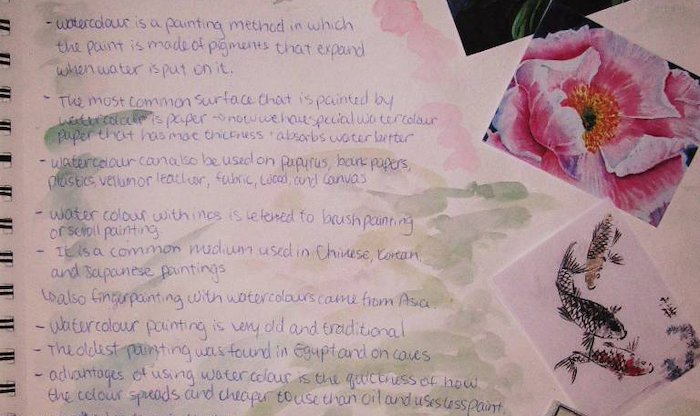 - watercolour is a painting method in which
the paint is made of pigments that expand
when water is put on it.
- The most common surface that is painted by
watercolour is paper → now we have special watercolour
paper that has more thickness + absorbs water better
- watercolour can also be used on papyrus, bark papers,
plastics, vellum or leather, fabric, wood, and canvas
- water colour with inks is refered to brush painting
or scroll painting
- It is a common medium used in Chinese, Korean,
and Japanese paintings
↳ also fingerpainting with watercolours came from Asia.
- watercolour painting is very old and traditional
- The oldest painting was found in Egypt and on caves
- advantages of using watercolour is the quickness of how
the colour spreads and cheaper to use than oil and uses less paint.